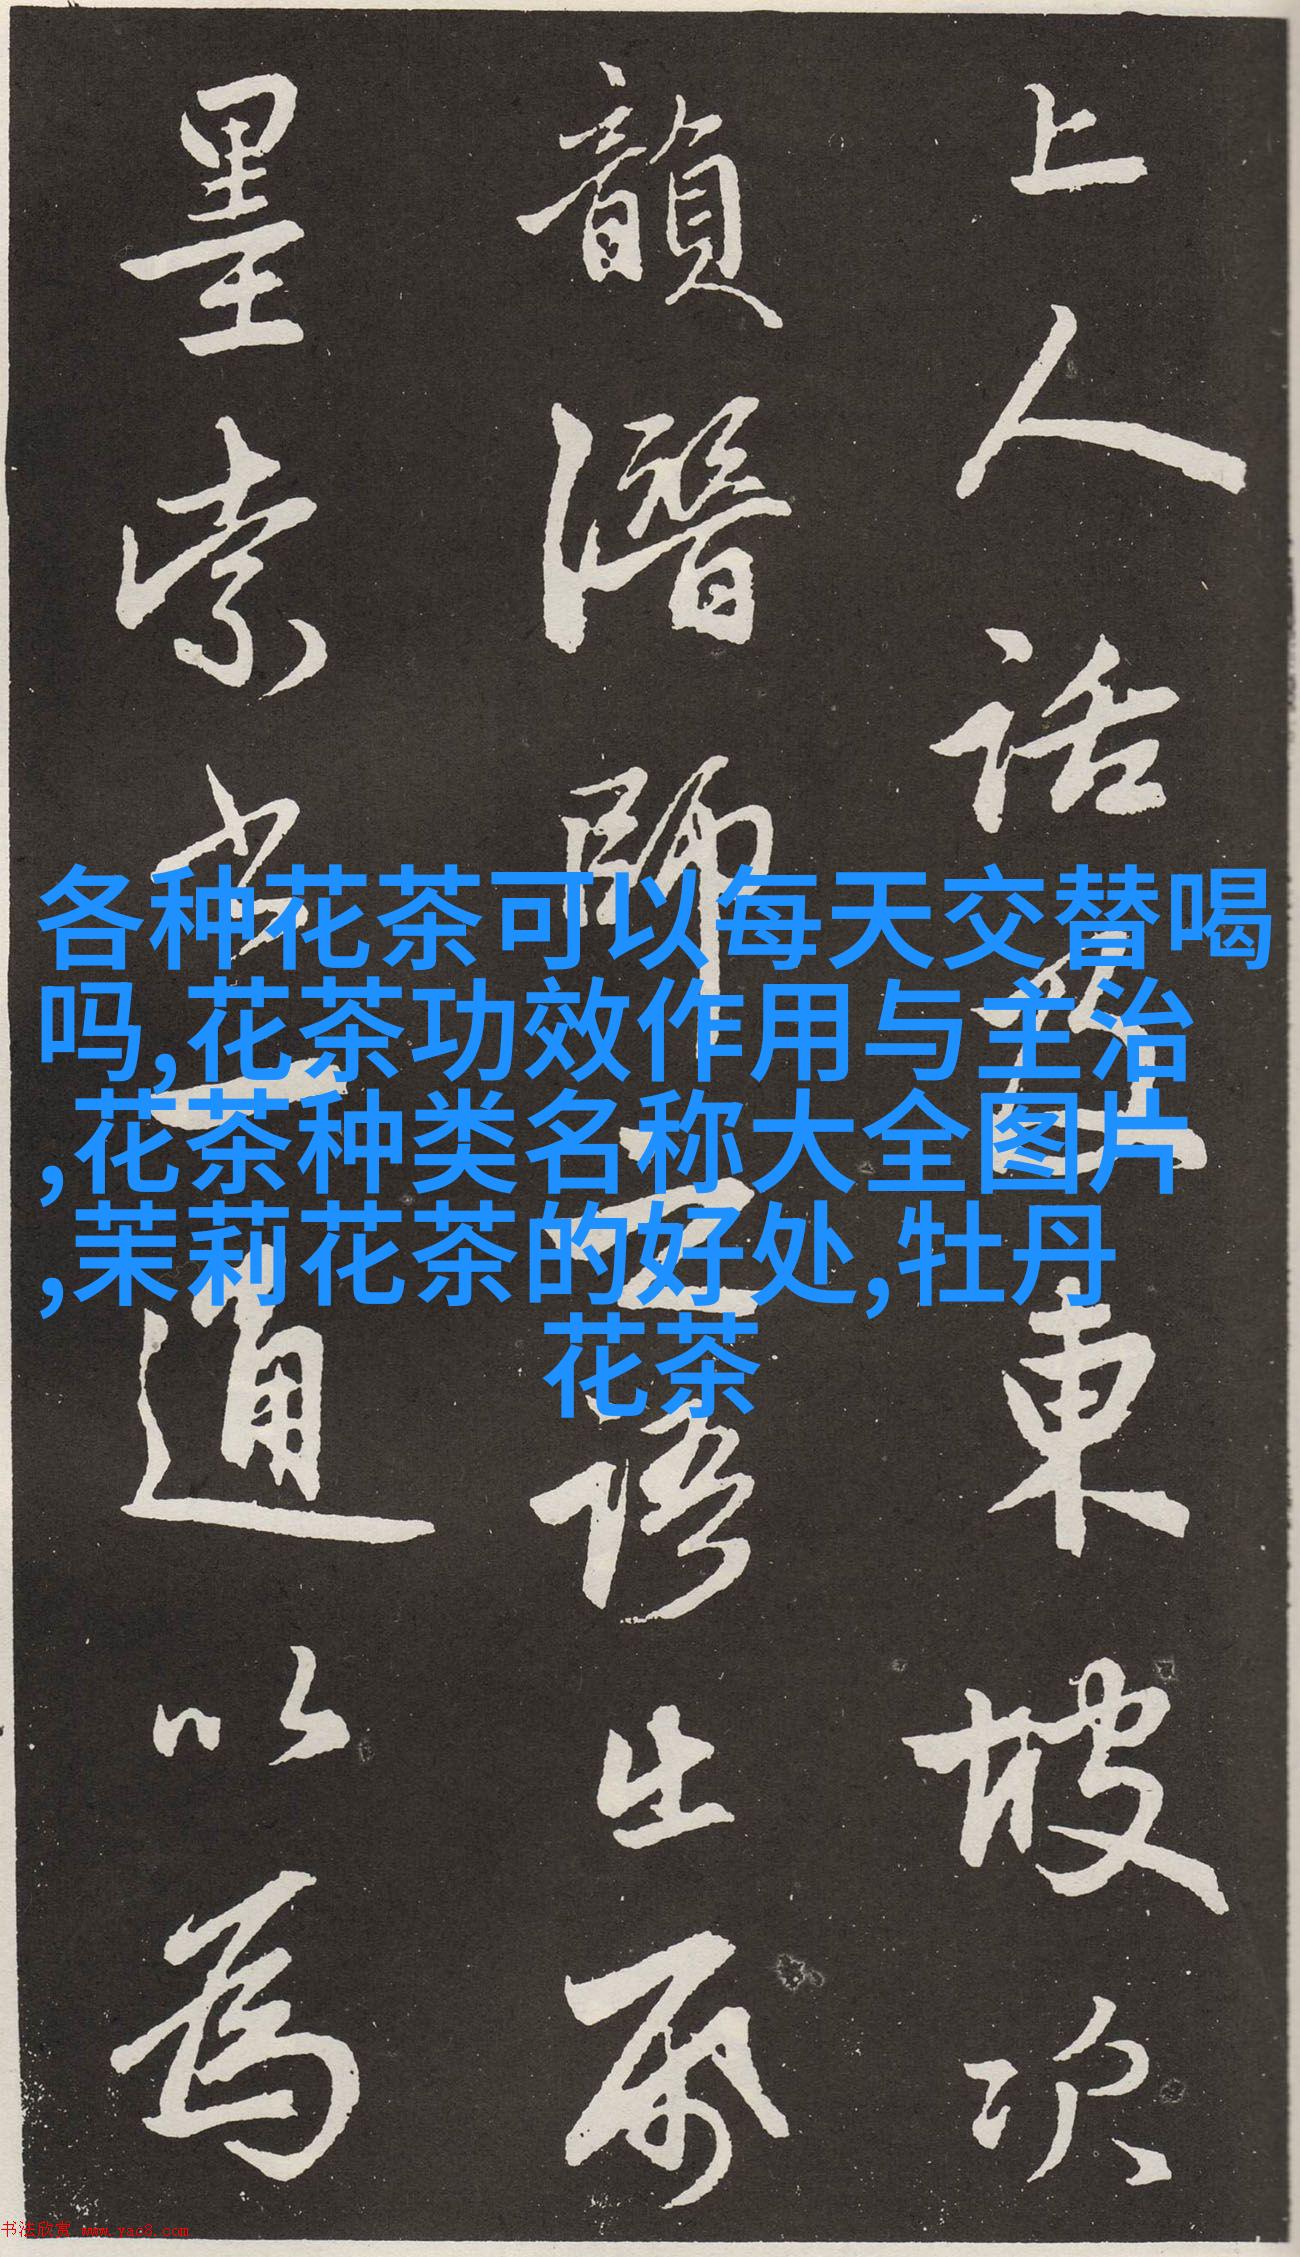 上人話東坡次
韻潛師語出帋
墨索書一通以為
各种花茶可以每天交替喝
吗,花茶功效作用与主治
,花茶种类名称大全图片
,茉莉花茶的好处,牡丹
花茶
书法欣赏 www.yac8.com